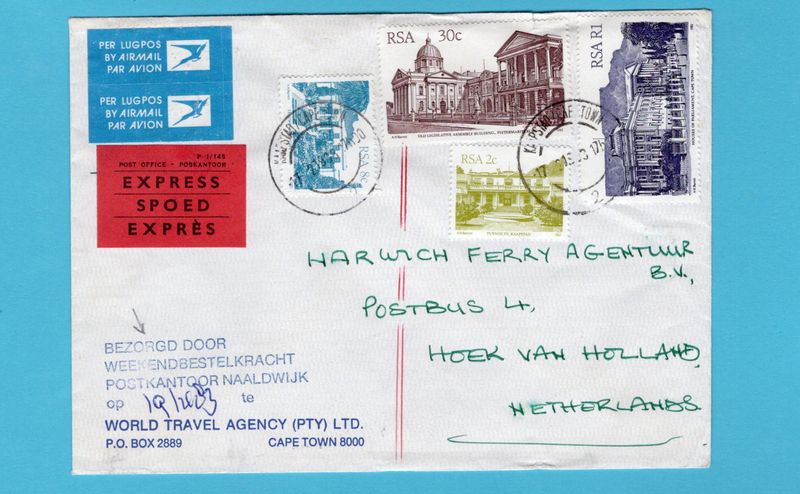 PER LUGPOS
BY AIRMAIL
PAR AVION
PER LUGPOS
BY AIRMAIL
PAR AVION
P 1/145
POST OFFICE - POSKANTOOR
EXPRESS
SPOED
EXPRÈS
RSA 8c
RSA 30c
OLD LEGISLATIVE ASSEMBLY BUILDING, PIETERMARITZBURG
RSA R1
HOUSES OF PARLIAMENT, CAPE TOWN
RSA 2c
TUYNHUYS, KAAPSTAD
KAAPSTAD CAPE TOWN
2
HARWICH FERRY AGENTUUR
B.V.,
POSTBUS 4,
HOEK VAN HOLLAND,
NETHERLANDS.
BEZORGD DOOR
WEEKENDBESTELKRACHT
POSTKANTOOR NAALDWIJK
op te
WORLD TRAVEL AGENCY (PTY) LTD.
P.O. BOX 2889 CAPE TOWN 8000